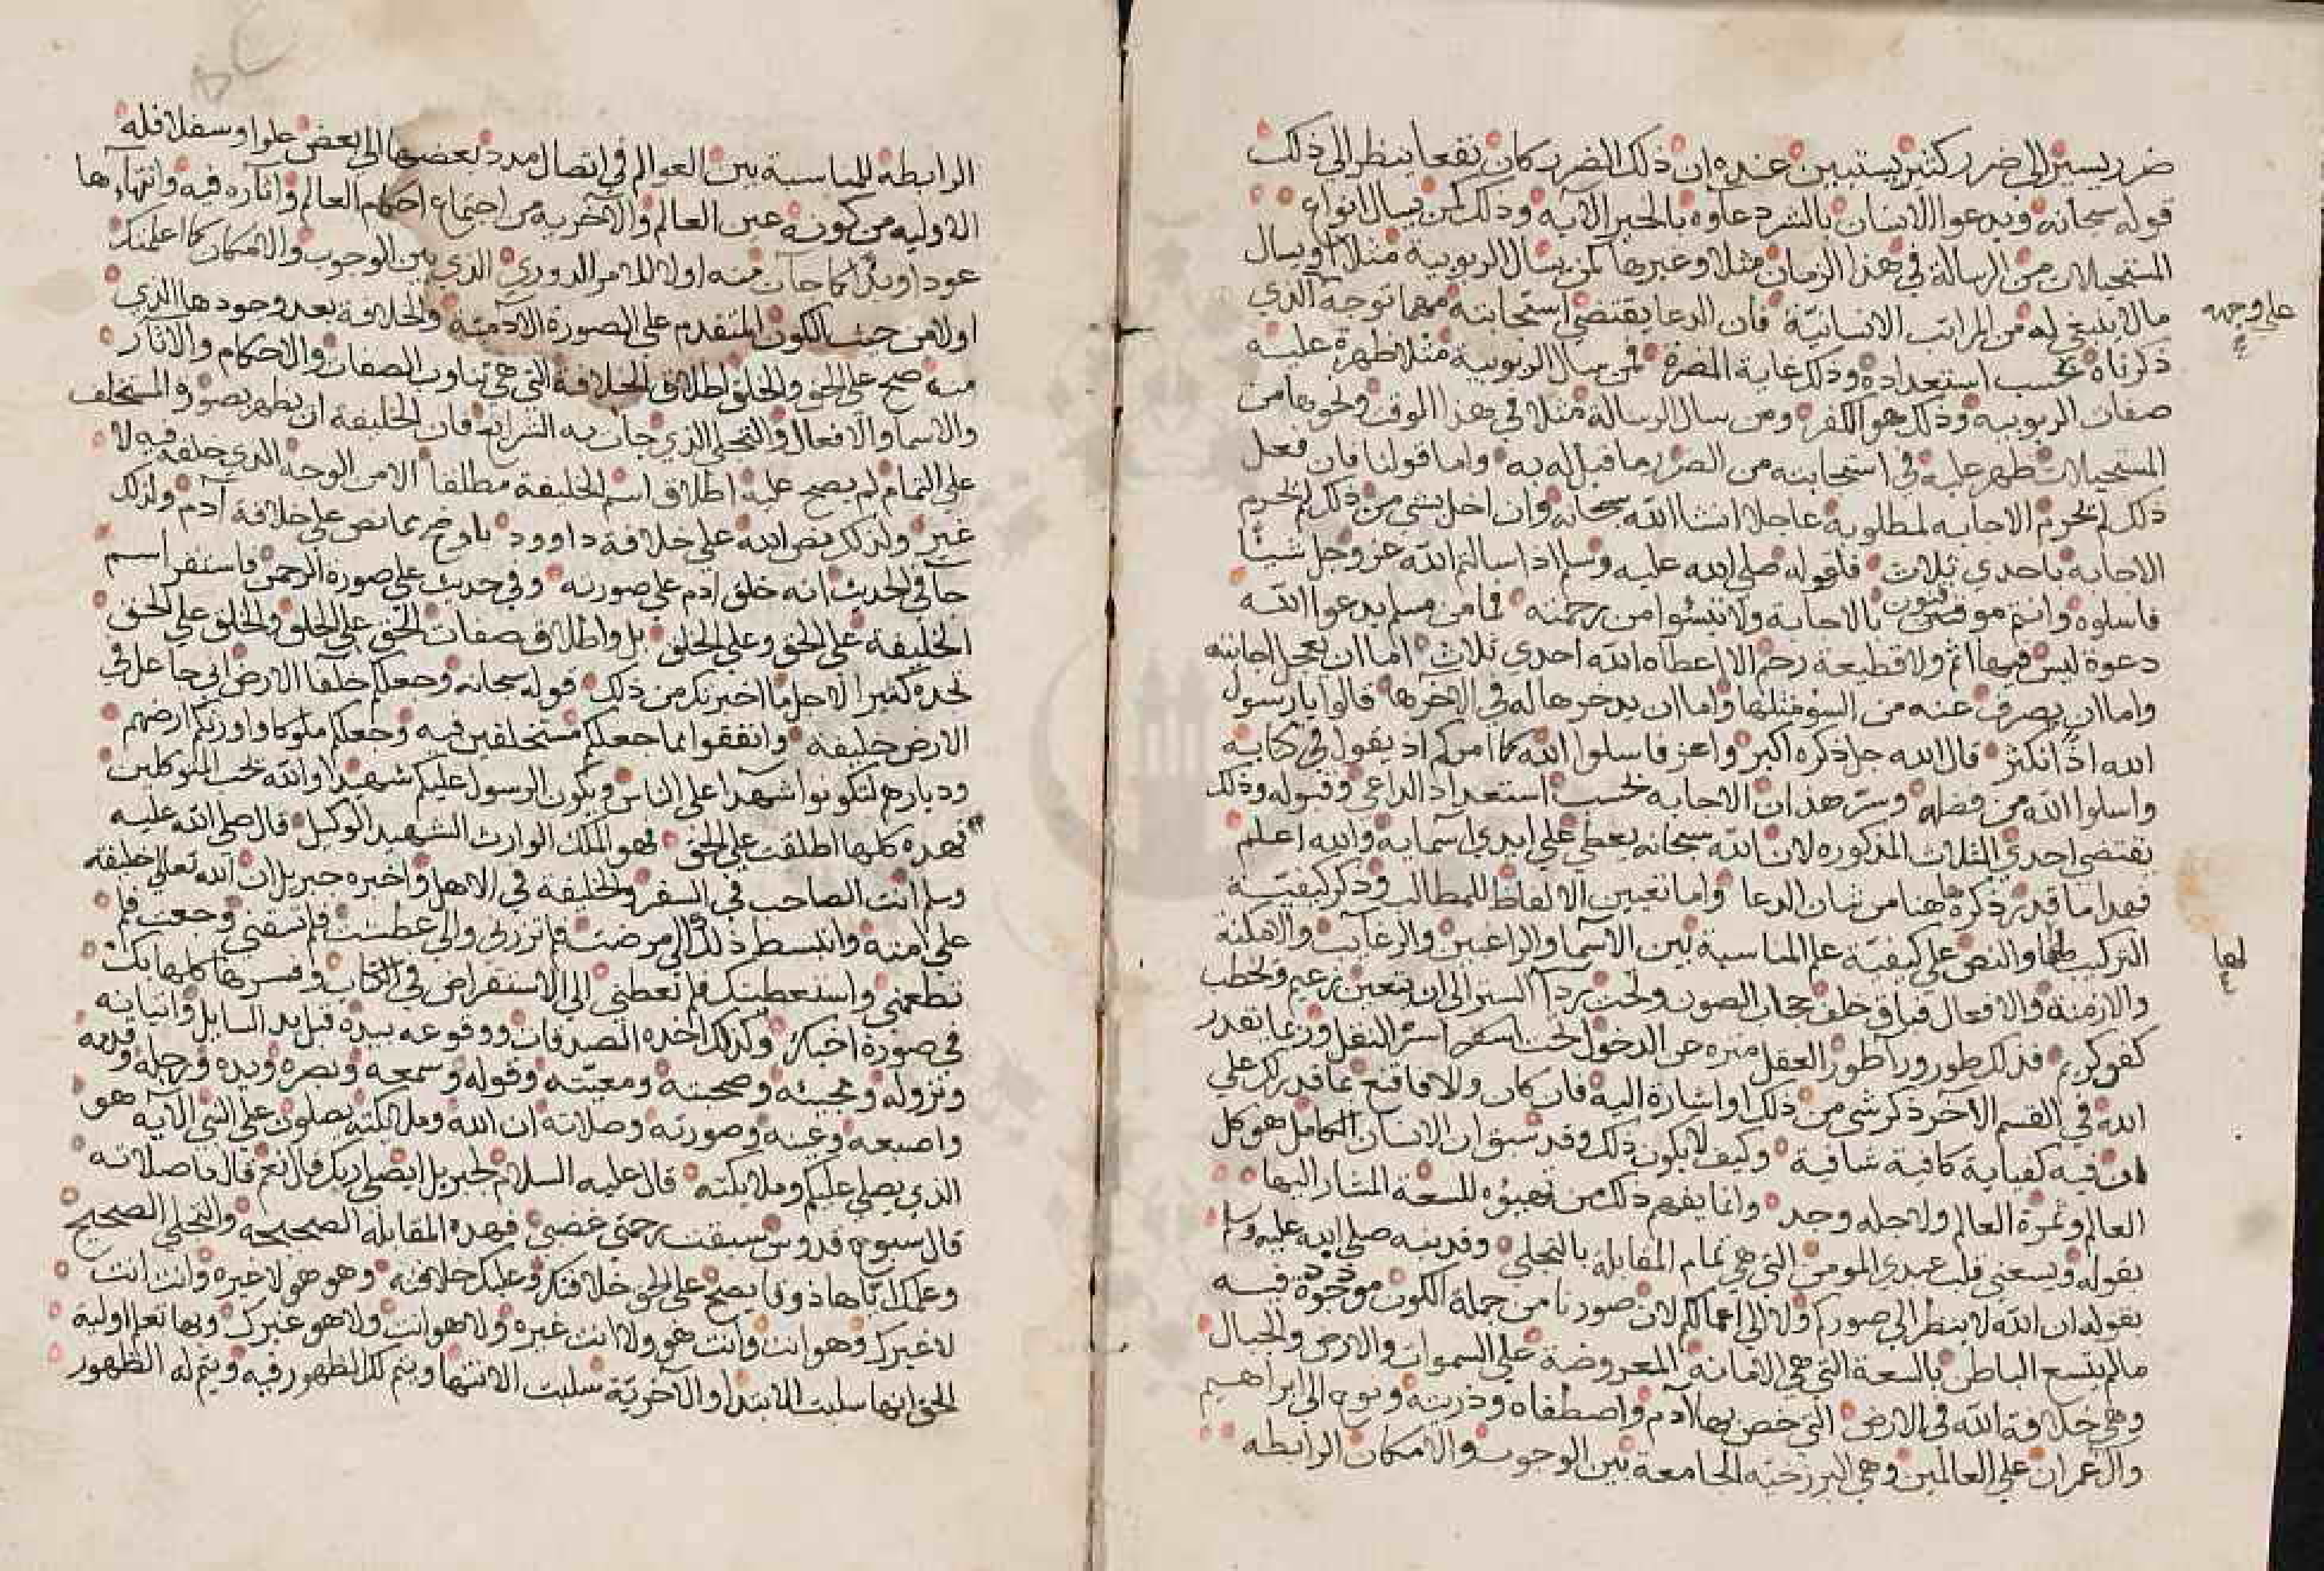 ضرر يسير الى ضرر كثير يستبين عنده ان ذلك الضرر كان نفعا ينظر الى ذلك
قوله سبحانه ويدعو الانسان بالشر دعاوه بالخير الآيه وذلك كمن يسال انواع
المستحيلات من الرسالة في هذا الزمان مثلا وغيرها كمن يسال الربوبية مثلا او يسال
مالا ينبغي له من المراتب الانسانية فان الدعا يقتضي استجابته مهما توجه الذي
على وجهه
ذكرناه بحسب استعداده وذلك غاية المضرة فمن سال الربوبية مثلا ظهرة عليه
صفات الربوبيه وذلك هو الكفر ومن سال الرسالة مثلا في هذا الموقف ونحوها من
المستحيلات ظهر عليه في استجابته من الضرر ما قبل له به واما قولنا فان فعل
ذلك لم يحرم الاجابه لمطلوبه عاجلا انشا الله سبحانه وان اخل بشي من ذلك لم يحرم
الاجابه باحدي ثلاث فلقوله صلى الله عليه وسلم اذا سالتم الله عز وجل شيئا
فاسلوه وانتم موقنون بالاجابة ولا تيئسوا من رحمته فما من مسلم يدعوا الله
دعوة ليس فيها اثم ولا قطيعة رحم الا اعطاه الله احدي ثلاث اما ان يعجل اجابته
واما ان يصرف عنه من السؤ مثلها واما ان يدخرها له في الاخرها قالوا يا رسول
الله اذا نكثر قال الله جل ذكره اكبر واعز فاسلوا الله كما امركم اذ يقول في كتابه
واسلوا الله من فضله وسر هذا ان الاجابه بحسب استعداد الداعي وقبوله وذلك
يقتضي احدي الثلاث المذكوره لان الله سبحانه يعطي على ايدي اسمايه والله اعلم
فهذا ما قدر ذكره هنا من شان الدعا واما تعيين الالفاظ للمطالب وذكر كيفية
التركيب لها والنص على كيفية علم المناسبة بين الاسما والراغبين والرغايب والامكنة
لها
والازمنة والافعال فباق خلف حجاب الصون وتحت ردآ الستر الى ان يتعين زعيم ويخطب
كفو كريم فذلك طور ورآ طور العقل منزه عن الدخول تحت اسر النقل وربما يقدر
الله في القسم الآخر ذكر شي من ذلك او اشارة اليه فان كان والا فاقنع بما قدر لك علي
ان فيه كفاية كافية شافية وكيف لا يكون ذلك وقد سبق ان الانسان الكامل هو كل
العالم وثمرة العالم ولاجله وجد وانما يفهم ذلك من تهيؤه للسعة المشار اليها
بقوله ويسعني قلب عبدي المومن التي هي تمام المقابله بالتجلي وقد بينه صلى الله عليه وسلم
بقوله ان الله لا ينظر الى صوركم ولا الى اعمالكم لان صورنا من جملة الكون موجودة فيه
مالم يتسع الباطن بالسعة التي هي الامانة المعروضة على السموات والارض والجبال
وهي خلافة الله في الارض التي خص بها آدم واصطفاه وذريته ونوح الى ابراهيم
وال عمران على العالمين وهي البرزخية الجامعة بين الوجوب والامكان الرابطه
الرابطة للمناسبة بين العوالم في اتصال مدد بعضها الى بعض علوا وسفلا فله
الاوليه من كونه عين العالم والآخريه من اجتماع احكام العالم وآثاره فيه وانتهآءها
عودا كما جآت منه اولا للامر الدوري الذي بين الوجوب والامكان كما اعلمتك
اولا من حيث الكون المتقدم على الصورة الآدمية والخلافة بعد وجودها الذي
منه صح على الحق والخلق اطلاق الخلافة التي هي تناوب الصفات والاحكام والآثار
والاسما والافعال والتجلي الذي جآت به الشرايع فان الخليفة ان يظهر بصورة المستخلف
على التمام لم يصح عليه اطلاق اسم الخليفة مطلقا الا من الوجه الذي خلفه فيه لا
غير ولذلك نص الله على خلافة داوود باوضح مما نص على خلافة آدم ولذلك
جآ في الحديث انه خلق ادم على صورته وفي حديث على صورة الرحمن فاستقر اسم
الخليفة على الحق وعلى الخلق بل واطلاق صفات الحق على الخلق والخلق على الحق
تجده كثيرا لاجل ما اخبرتك من ذلك قوله سبحانه وجعلكم خلفا الارض اني جاعل في
الارض خليفه وانفقوا مما جعلكم مستخلفين فيه وجعلكم ملوكا واورثكم ارضهم
وديارهم لتكونوا شهدآ على الناس ويكون الرسول عليكم شهيدا والله يحب المتوكلين
فهذه كلها اطلقت على الحق فهو الملك الوارث الشهيد الوكيل قال صلى الله عليه
وسلم انت الصاحب في السفر والخليفة في الاهل واخبره جبريل ان الله تعالى خليفه
على امته وانبسط ذلك الى مرضت فلم تزرني والى عطشت فلم تسقني وجعت فلم
تطعمني واستعطيتك فلم تعطني الى الاستقراض في الكتاب وفسرها كلها بك او
في صورة اخيك وكذلك اخذه الصدقات ووقوعه بيده قبل يد السايل واتيانه
ونزوله ومجيئه وصحبته ومعيته وقوله وسمعه وبصره ويده ورجله وقدمه
واصبعه وعينه وصورته وصلاته ان الله وملايكته يصلون على النبي الآيه هو
الذي يصلي عليكم وملايكته قال عليه السلام لجبريل ايصلي ربك قال نعم قال ما صلاته
قال سبوح قدوس سبقت رحمتي غضبي فهذه المقابله الصحيحه والتجلي الصحيح
يصح على الحق خلافتك وعليك خلافته وهو هو لا غيره وانت انت
لا غيرك وهو انت وانت هو ولا انت غيره ولا هو انت ولا هو غيرك وبها تعلم اولية
الحق انها سلبت الابتدآ والآخرية سلبت الانتها ويتم لك الظهور فيه ويتم له الظهور